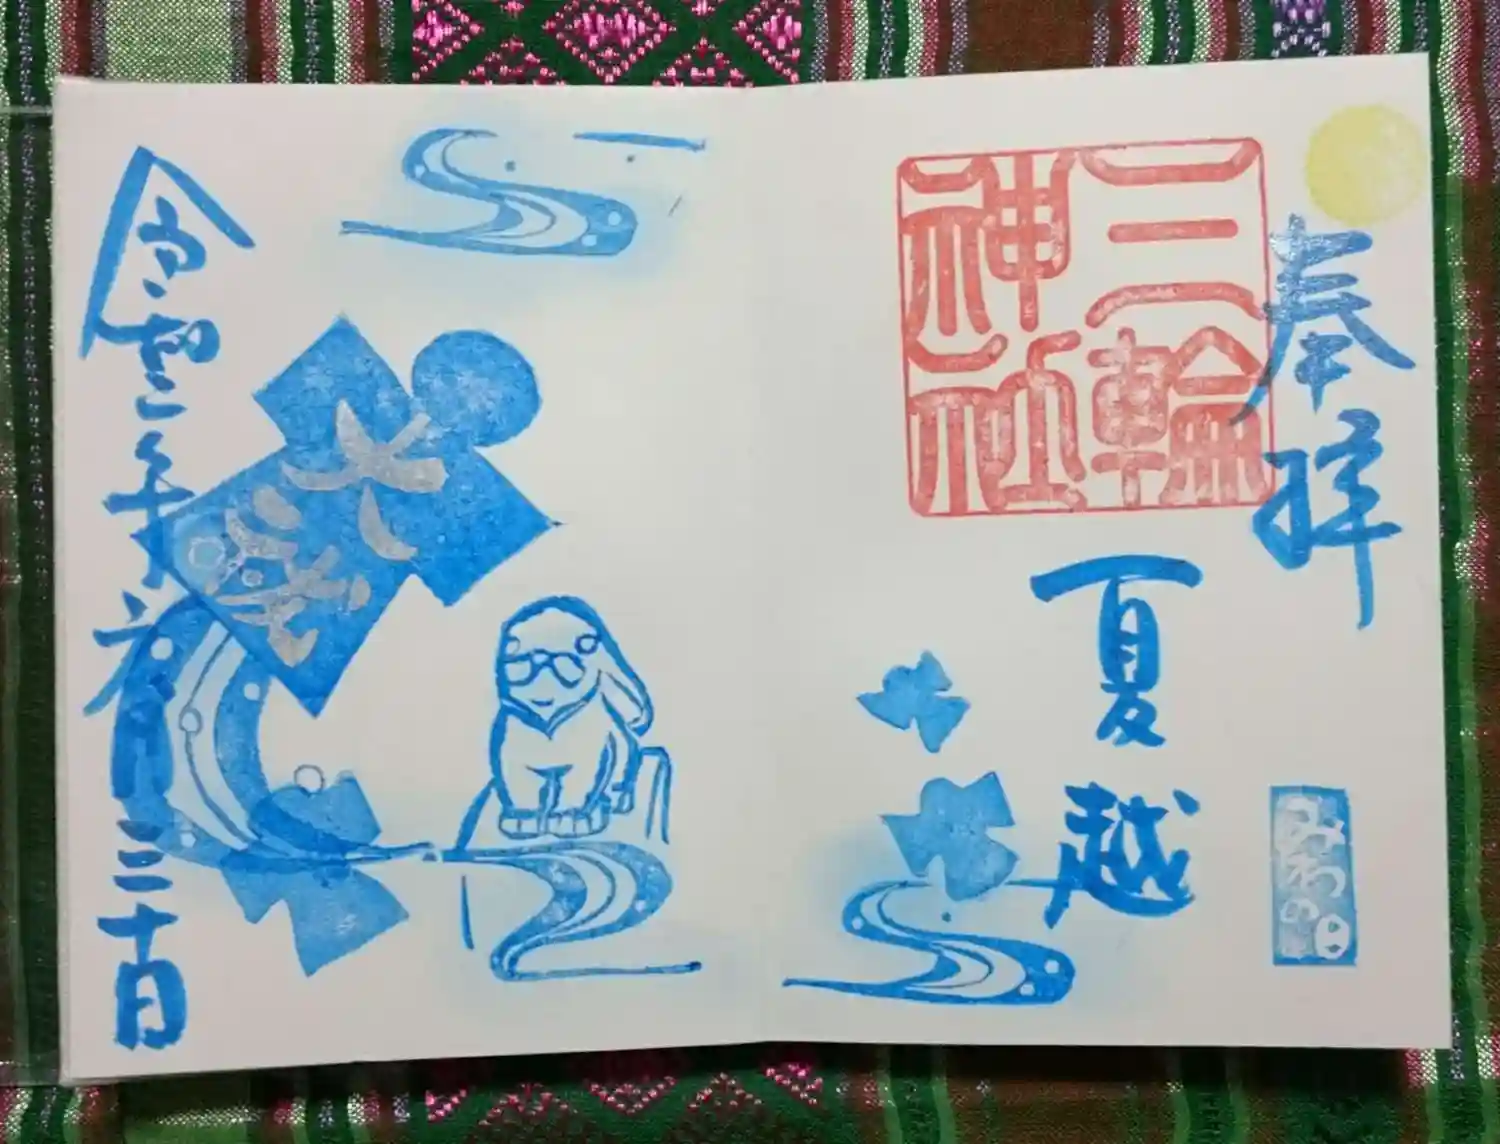 奉拝
三輪
神社
夏越
みわの
大祓
令和二年六月三十日